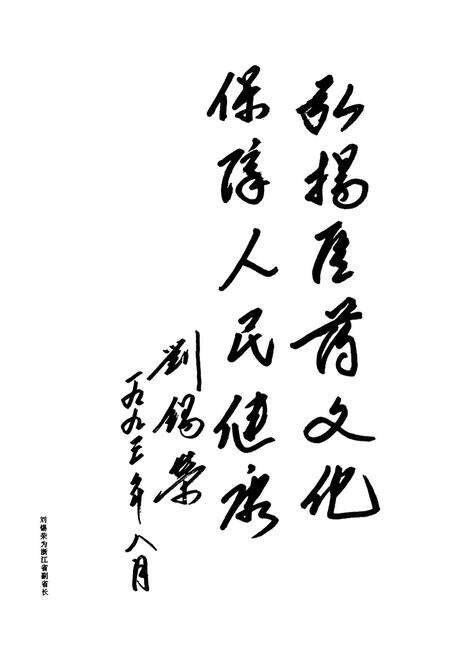 弘扬医药文化
保障人民健康
劉锡荣
一九九三年八月
刘锡荣为浙江省副省长